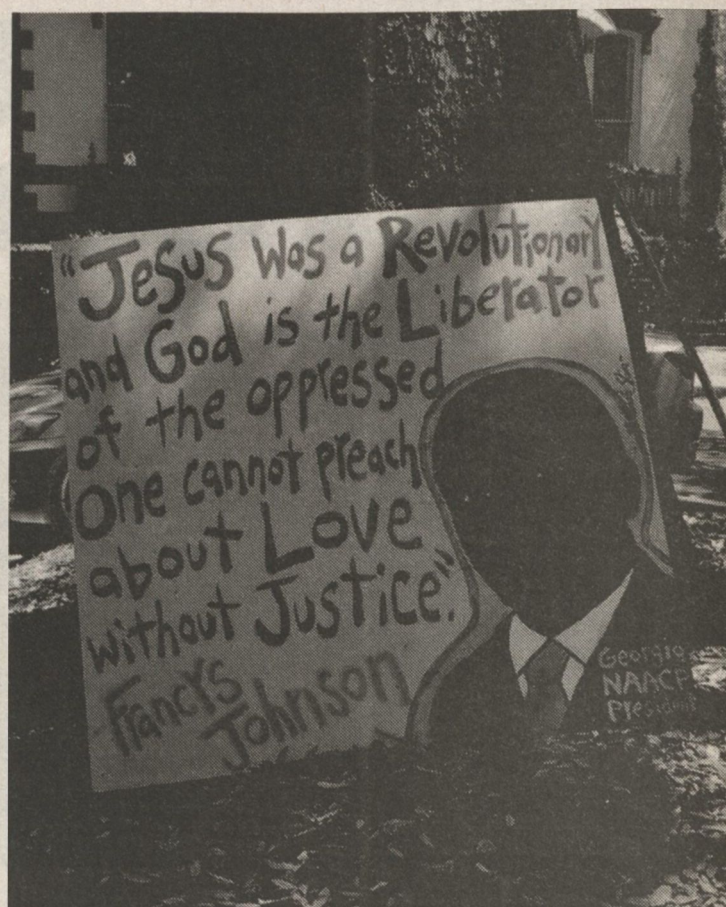 "Jesus Was a Revolutionary
and God is the Liberator
of the oppressed
One cannot preach
about Love
without Justice."
Francys
Johnson
Georgia
NAACP
President